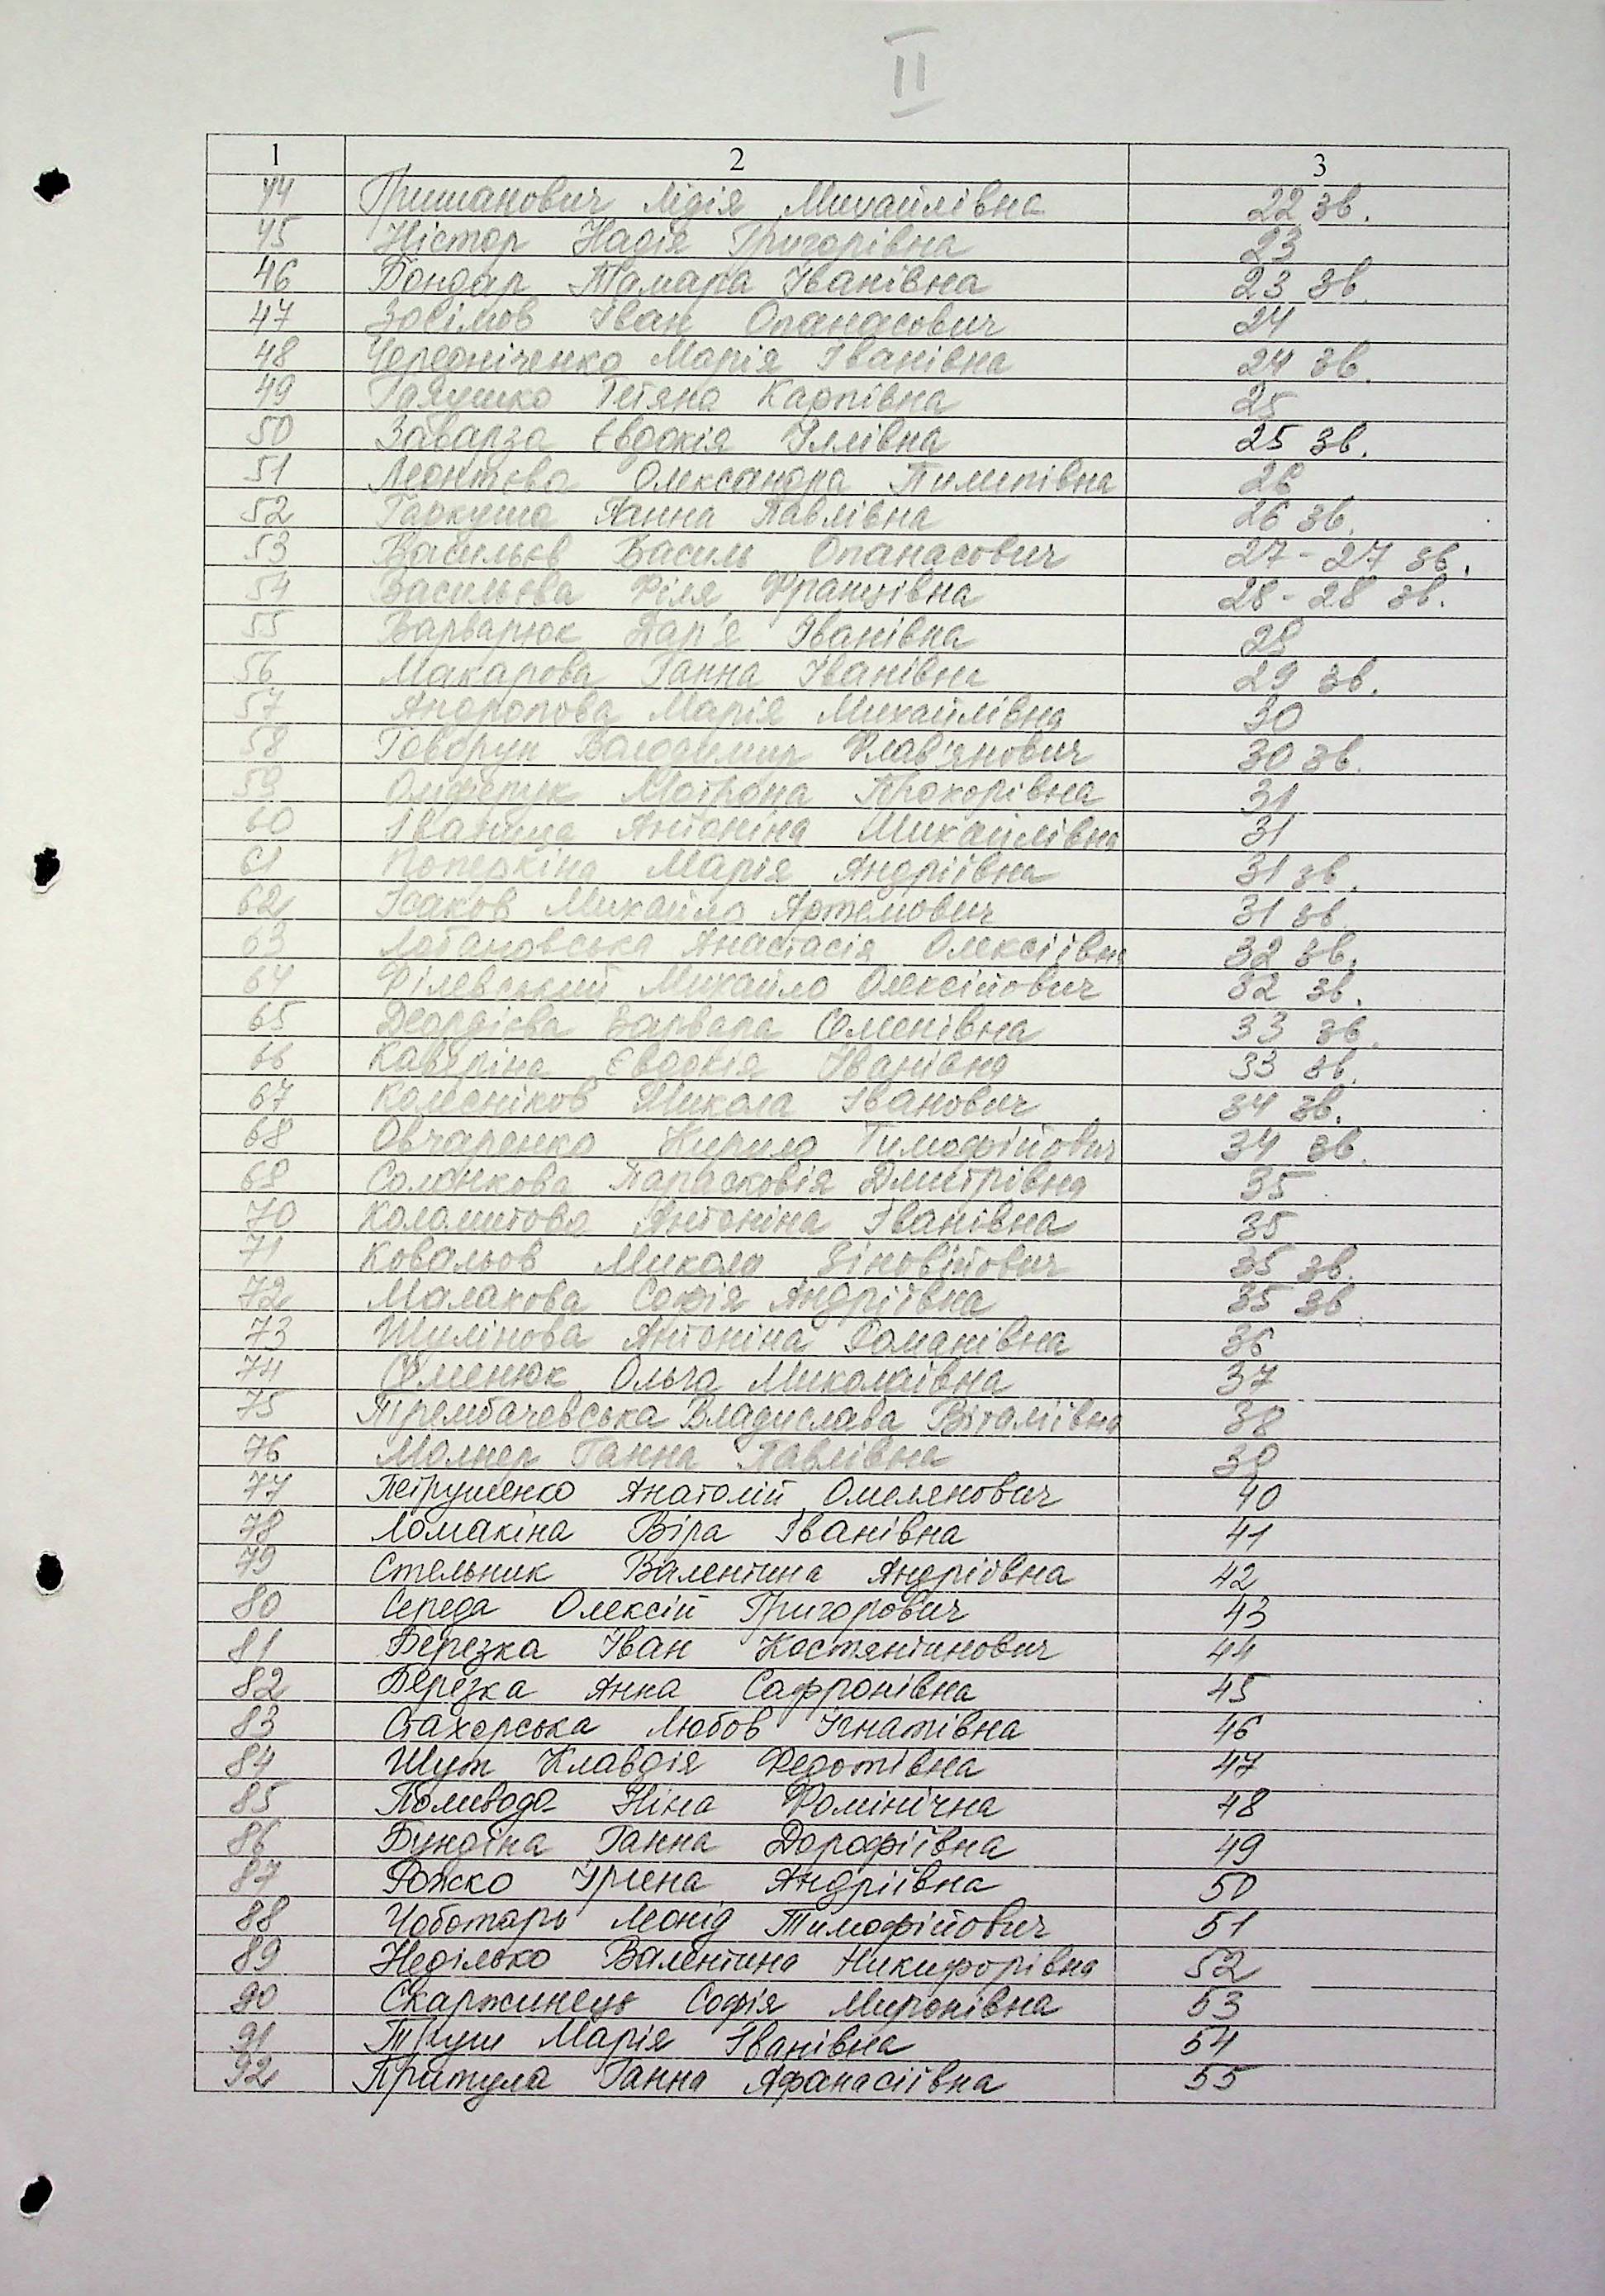 II
1 2 3
44 Гришанович Лідія Михайлівна 22 зв.
45 Ністор Надія Григорівна 23
46 Бондар Тамара Іванівна 23 зв.
47 Зосімов Іван Опанасович 24
48 Чередніченко Марія Іванівна 24 зв.
49 Галушко Тетяна Карпівна 25
50 Заварза Євдокія Іллівна 25 зв.
51 Леонтєва Олександра Пилипівна 26
52 Гаркуша Ганна Павлівна 26 зв.
53 Васильєв Василь Опанасович 27-27 зв.
54 Васильєва Філя Францівна 28-28 зв.
55 Варварюк Дар'я Іванівна 28
56 Макарова Ганна Іванівна 29 зв.
57 Андропова Марія Михайлівна 30
58 Говорун Володимир Флав'янович 30 зв.
59 Оліферук Мотрона Прохорівна 31
60 Іваница Антоніна Михайлівна 31
61 Поперкіна Марія Андріївна 31 зв.
62 Ісаков Михайло Артемович 31 зв.
63 Лотановська Анастасія Олексіївна 32 зв.
64 Філевський Михайло Олексійович 32 зв.
65 Деордієва Варвара Семенівна 33 зв.
66 Каверіна Євдокія Іванівна 33 зв.
67 Колесніков Микола Іванович 34 зв.
68 Овчаренко Кирило Тимофійович 34 зв.
69 Солонкова Парасковія Дмитрівна 35
70 Коломитова Антоніна Іванівна 35
71 Ковальов Микола Зіновійович 35 зв.
72 Малахова Софія Андріївна 35 зв.
73 Шулінова Антоніна Романівна 36
74 Семенюк Ольга Миколаївна 37
75 Трембачевська Владислава Віталіївна 38
76 Молнер Ганна Павлівна 39
77 Петрушенко Анатолій Омелянович 40
78 Ломакіна Віра Іванівна 41
79 Стельник Валентина Андріївна 42
80 Середа Олексій Григорович 43
81 Березка Іван Костянтинович 44
82 Березка Анна Сафронівна 45
83 Стахорська Любов Ігнатівна 46
84 Шут Клавдія Федотівна 47
85 Поливода Ніна Фомінічна 48
86 Бундіна Ганна Дорофіївна 49
87 Рожко Ірина Андріївна 50
88 Чоботарь Леонід Тимофійович 51
89 Неділько Валентина Никифорівна 52
90 Скаржинець Софія Миронівна 53
91 Труш Марія Іванівна 54
92 Притула Ганна Афанасіївна 55